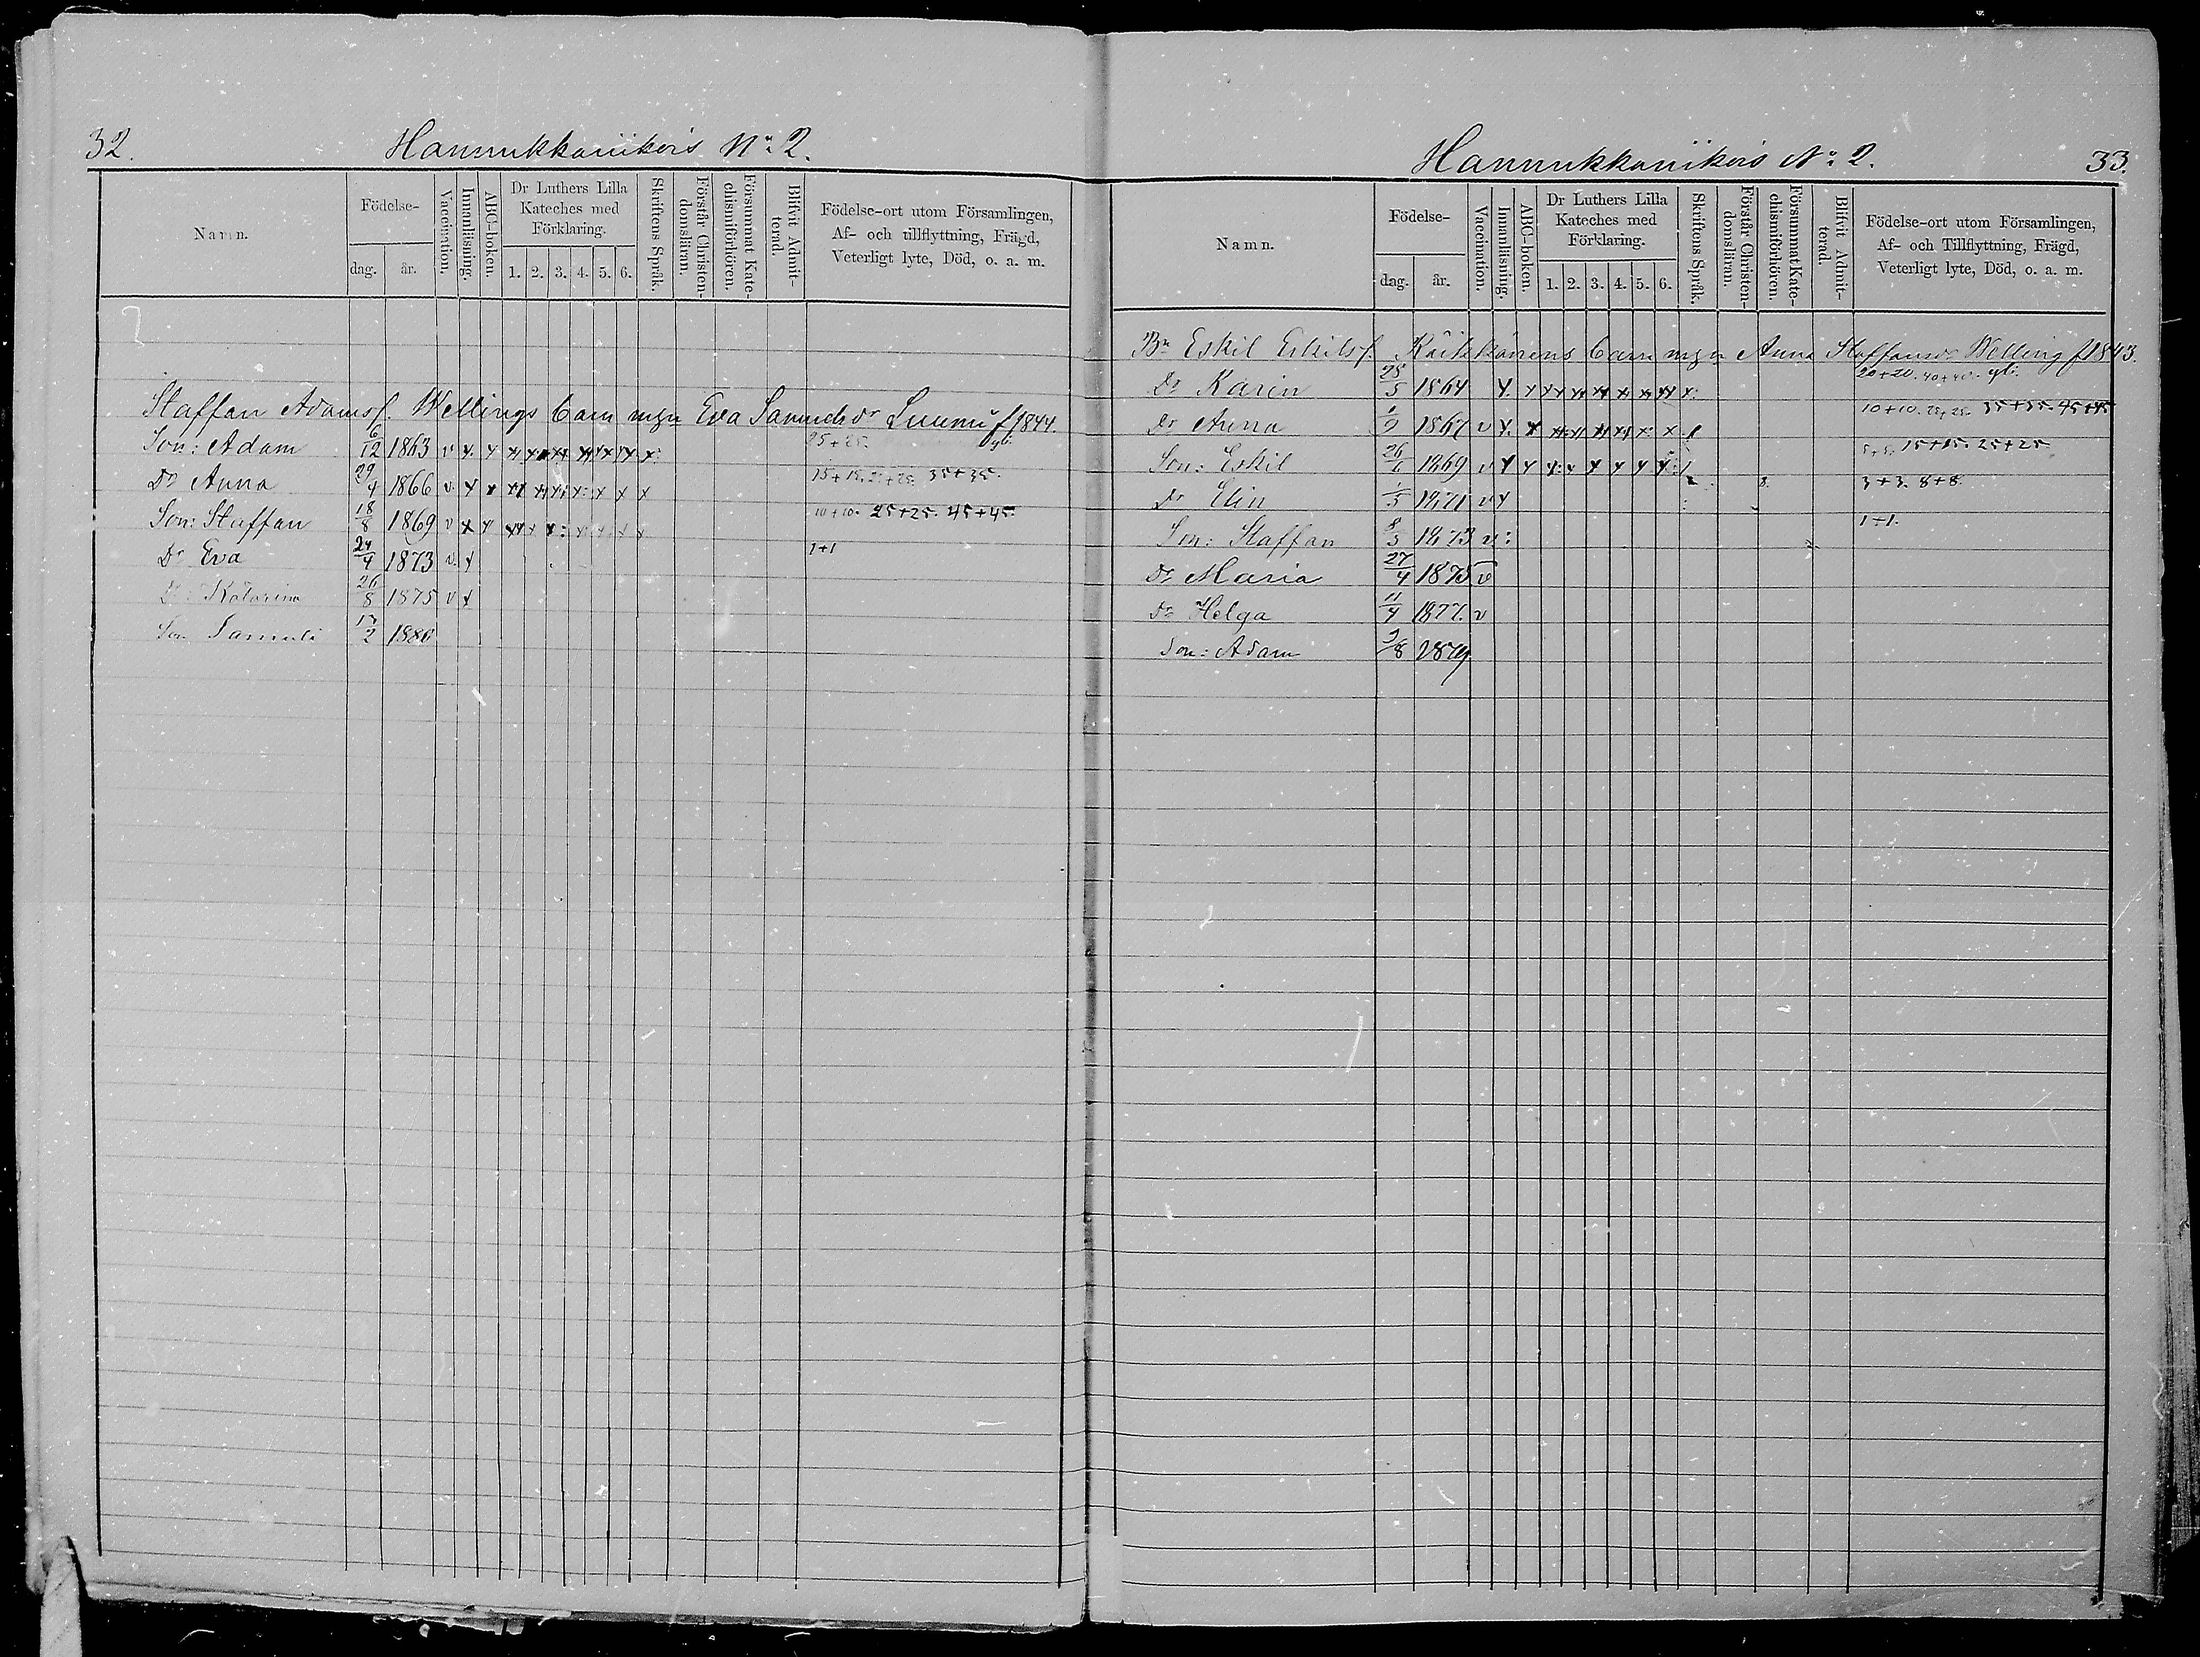 32.
Hannukkanikois No 2.
Namn.
Födelse-
dag.
år.
Vaccination.
Innanläsning.
ABC-boken.
Dr Luthers Lilla
Kateches med
Förklaring.
1. 2. 3. 4. 5. 6.
Skriftens Språk.
Förstår Christen-
domsläran.
Försummat Kate-
chismiförhören.
Blifvit Admit-
terad.
Födelse-ort utom Församlingen,
Af- och tillflyttning, Frägd,
Veterligt lyte, Död, o. a. m.
Staffan Adamsf. Wellings barn m Eva Samuelsdr f 1844.
Son: Adam 6/12 1863 v 25+25.
Dr Anna 29/4 1866 v 15+15. 25+25. 35+35.
Son: Staffan 18/8 1869 v 10+10. 25+25. 45+45.
Dr Eva 24/4 1873 v. 1+1
Dr Katarina 26/8 1875 v
Son Samuli 2 1880
Hannukkanikois No 2.
33.
Namn.
Födelse-
dag.
år.
Vaccination.
Innanläsning.
ABC-boken.
Dr Luthers Lilla
Kateches med
Förklaring.
1. 2. 3. 4. 5. 6.
Skriftens Språk.
Förstår Christen-
domsläran.
Försummat Kate-
chismiförhören.
Blifvit Admit-
terad.
Födelse-ort utom Församlingen,
Af- och Tillflyttning, Frägd,
Veterligt lyte, Död, o. a. m.
Bn Eskil Eskilsf. Räikkönens barn m Anna Staffansdr Welling f 1843.
Dr Karin 28/5 1864 20+20. 40+40.
Dr Anna 1867 v 10+10. 25+25. 35+35. 45+45
Son: Eskil 26/6 1869 v 5+5. 15+15. 25+25
Dr Elin 1/5 1871 v 3+3. 8+8
Son: Staffan 8/3 1873 v: 1+1.
Dr Maria 27/4 1875 v
Dr Helga 11/4 1877. v
Son: Adam 3/8 1879